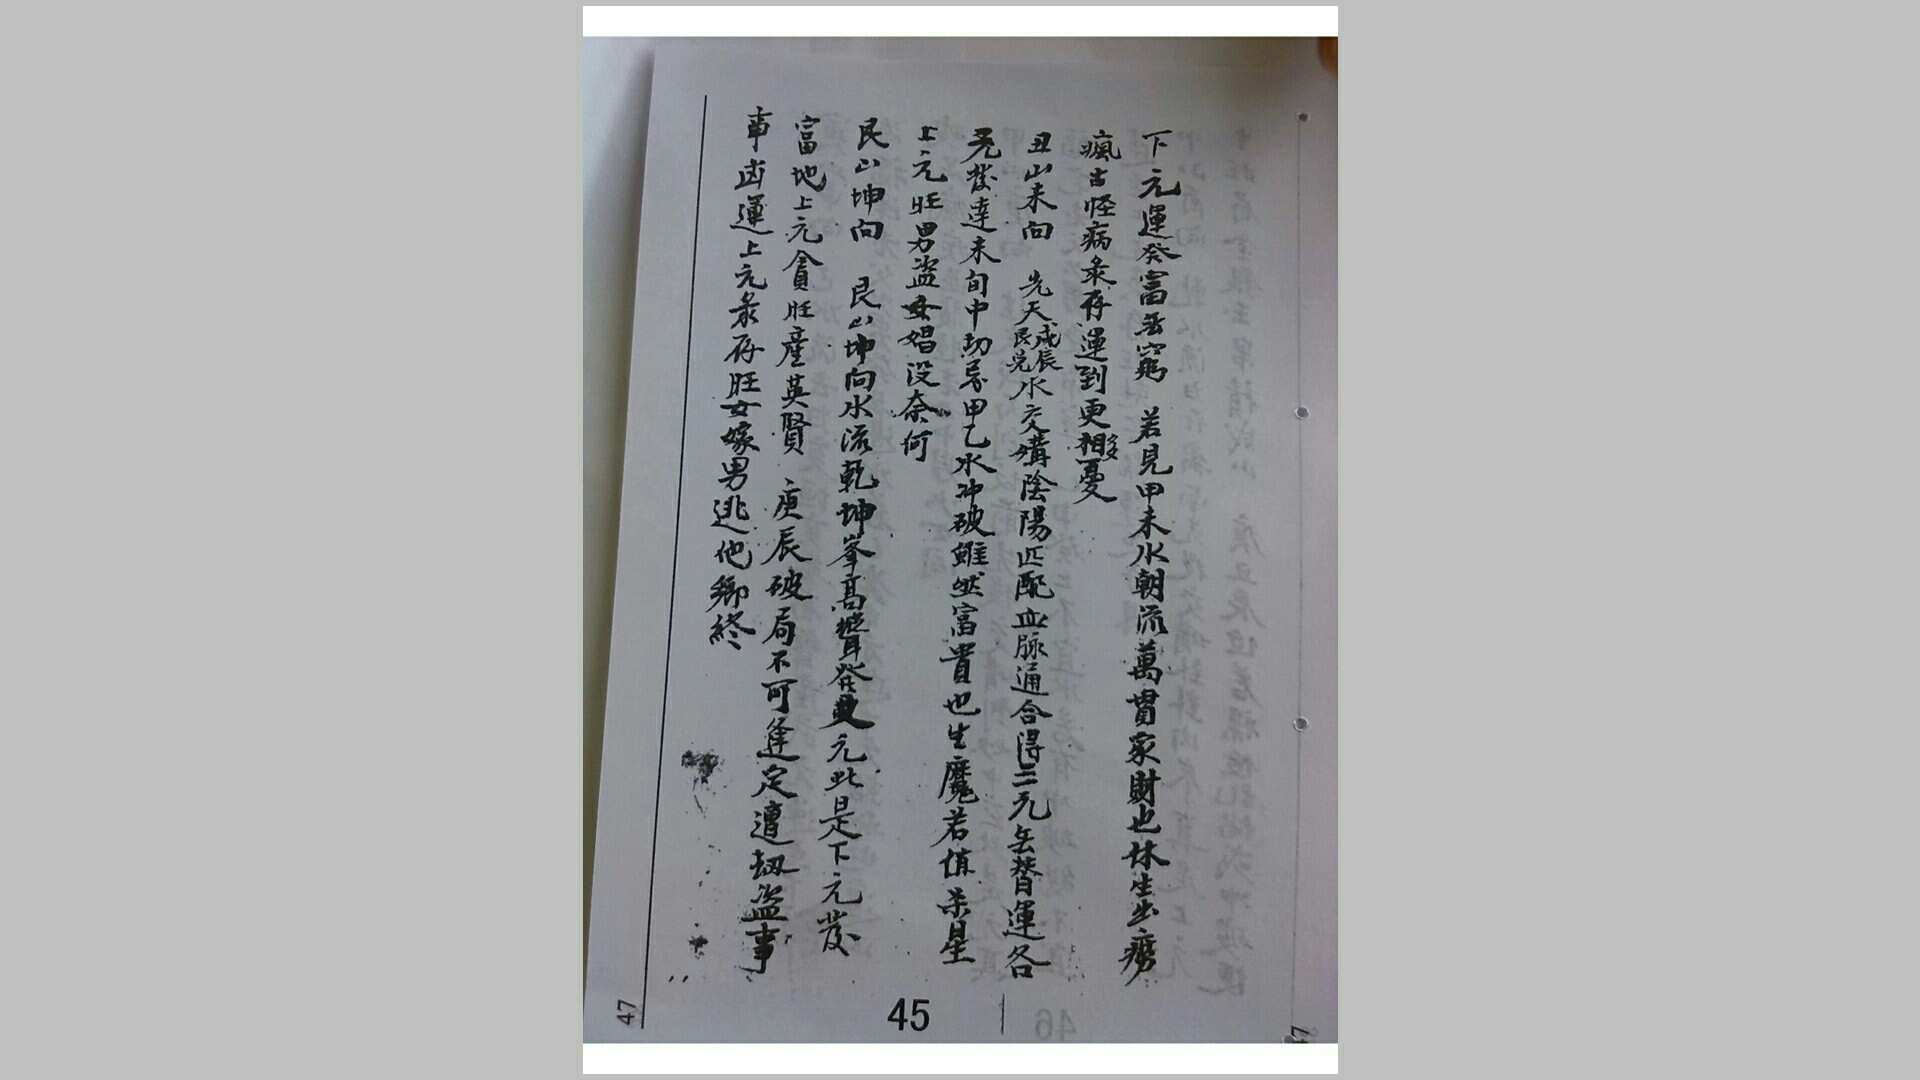 下元運發富無窮 若見甲未水朝流萬貫家財也休生出癆
瘋古怪病祿存運到更相憂
丑山未向 先天戌辰艮兌水交媾陰陽匹配血脉通合得三元無替運各
元發達未旬中切忌甲乙水冲破雖然富貴也生魔若值杀星
上元旺男盜女娼没奈何
艮山坤向 艮山坤向水流乾坤峯高聳發元此是下元發
富地上元貪旺產英賢 庚辰破局不可逢定遭劫盜事
事凶運上元彔存旺女嫁男逃他鄉終
45
47
46